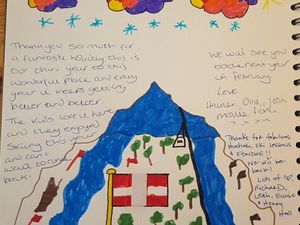 Thank you so much for
a fantastic holiday this is
our third year to this
wonderful place and every
year it keeps getting
better and better.
The kids love it here
and they enjoyed
Skiing this year
and can't
wait to come
back.
We will see you
back next year
at February.
Love
Josh
x x x x
Thanks for fabulous
hosting, ski lessons
& FONDUE!
We will be
back!
Lots of
Richard,
Leah, Eloise
& Henry
Hall